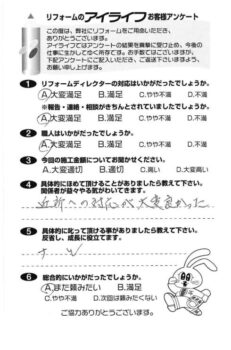 リフォームのアイライフお客様アンケート
この度は、弊社にリフォームをご用命いただき、
ありがとうございます。
アイライフではアンケートの結果を真摯に受け止め、今後の
仕事に生かしてゆく所存です。お手数ではございますが、
下記アンケートにご記入いただき、ご返送下さいますよう、
お願い申し上げます。
1 リフォームディレクターの対応はいかがだったでしょうか。
A.大変満足 B.満足 C.やや不満 D.不満
※報告・連絡・相談がきちんとされていましたでしょうか。
A.大変満足 B.満足 C.やや不満 D.不満
2 職人はいかがだったでしょうか。
A.大変満足 B.満足 C.やや不満 D.不満
3 今回の施工金額についてお聞かせください。
A.大変適切 B.適切 C.高い D.大変高い
4 具体的にほめて頂けることがありましたら教えて下さい。
関係者が益々やる気がわいてきます。
近所への対応が大変良かった
5 具体的に叱って頂ける事がありましたら教えて下さい。
反省し、成長に役立てます。
6 総合的にいかがだったでしょうか。
A.また頼みたい B.満足
C.やや不満 D.次回は頼みたくない
ご協力ありがとうございます。